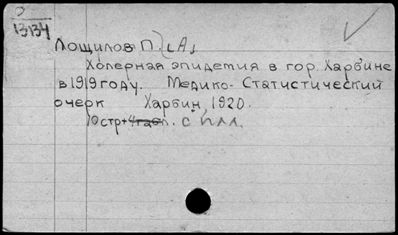 13134
Лощилов П.А.
Холерная эпидемия в гор. Харбине
в 1919 году. Медико-Статистический
очерк Харбин, 1920.
10 стр + 4 табл. с илл.